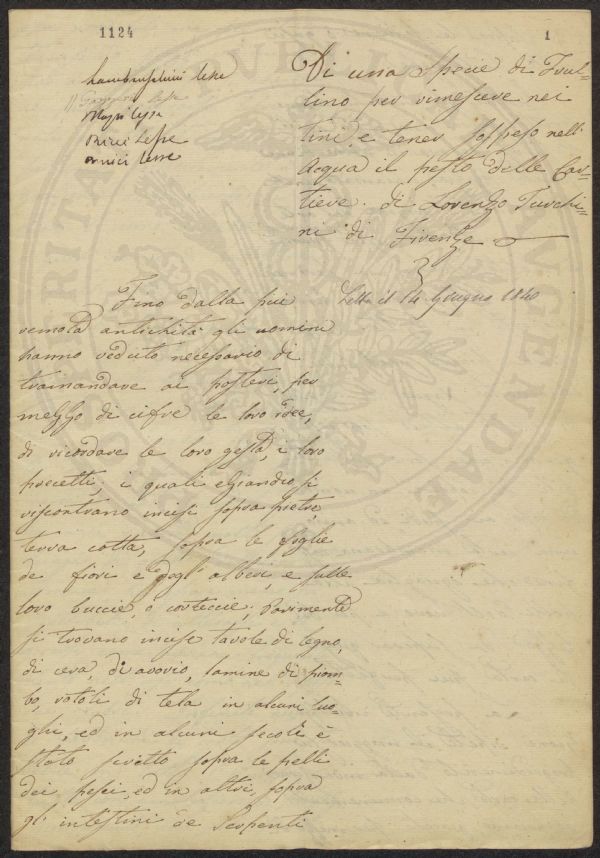 1124
1
Lambruschini lesse
Magri lesse
Ricci Lesse
Di una Specie di Frul=
lino per rimescere nei
tini e tener sospeso nell'
Acqua il pesto delle Car=
tiere. di Lorenzo Turchi=
ni di Firenze
Letta il 14 Giugno 1840
Fino dalla più
remota antichità gli uomini
hanno veduto necessario di
tramandare ai posteri, per
mezzo di cifre le loro idee,
di ricordare le loro gesta, i loro
precetti, i quali eziandio si
riscontrano incisi sopra pietre,
terra cotta, sopra le foglie
de fiori e degl'alberi, e sulle
loro buccie, o corteccie; Parimente
si trovano incise tavole di legno,
di cera, di avorio, lamine di piom=
bo, rotoli di tela in alcuni luo=
ghi, ed in alcuni secoli è
stato scritto sopra le pelli
dei pesci, ed in altri, sopra
gl'intestini de Serpenti